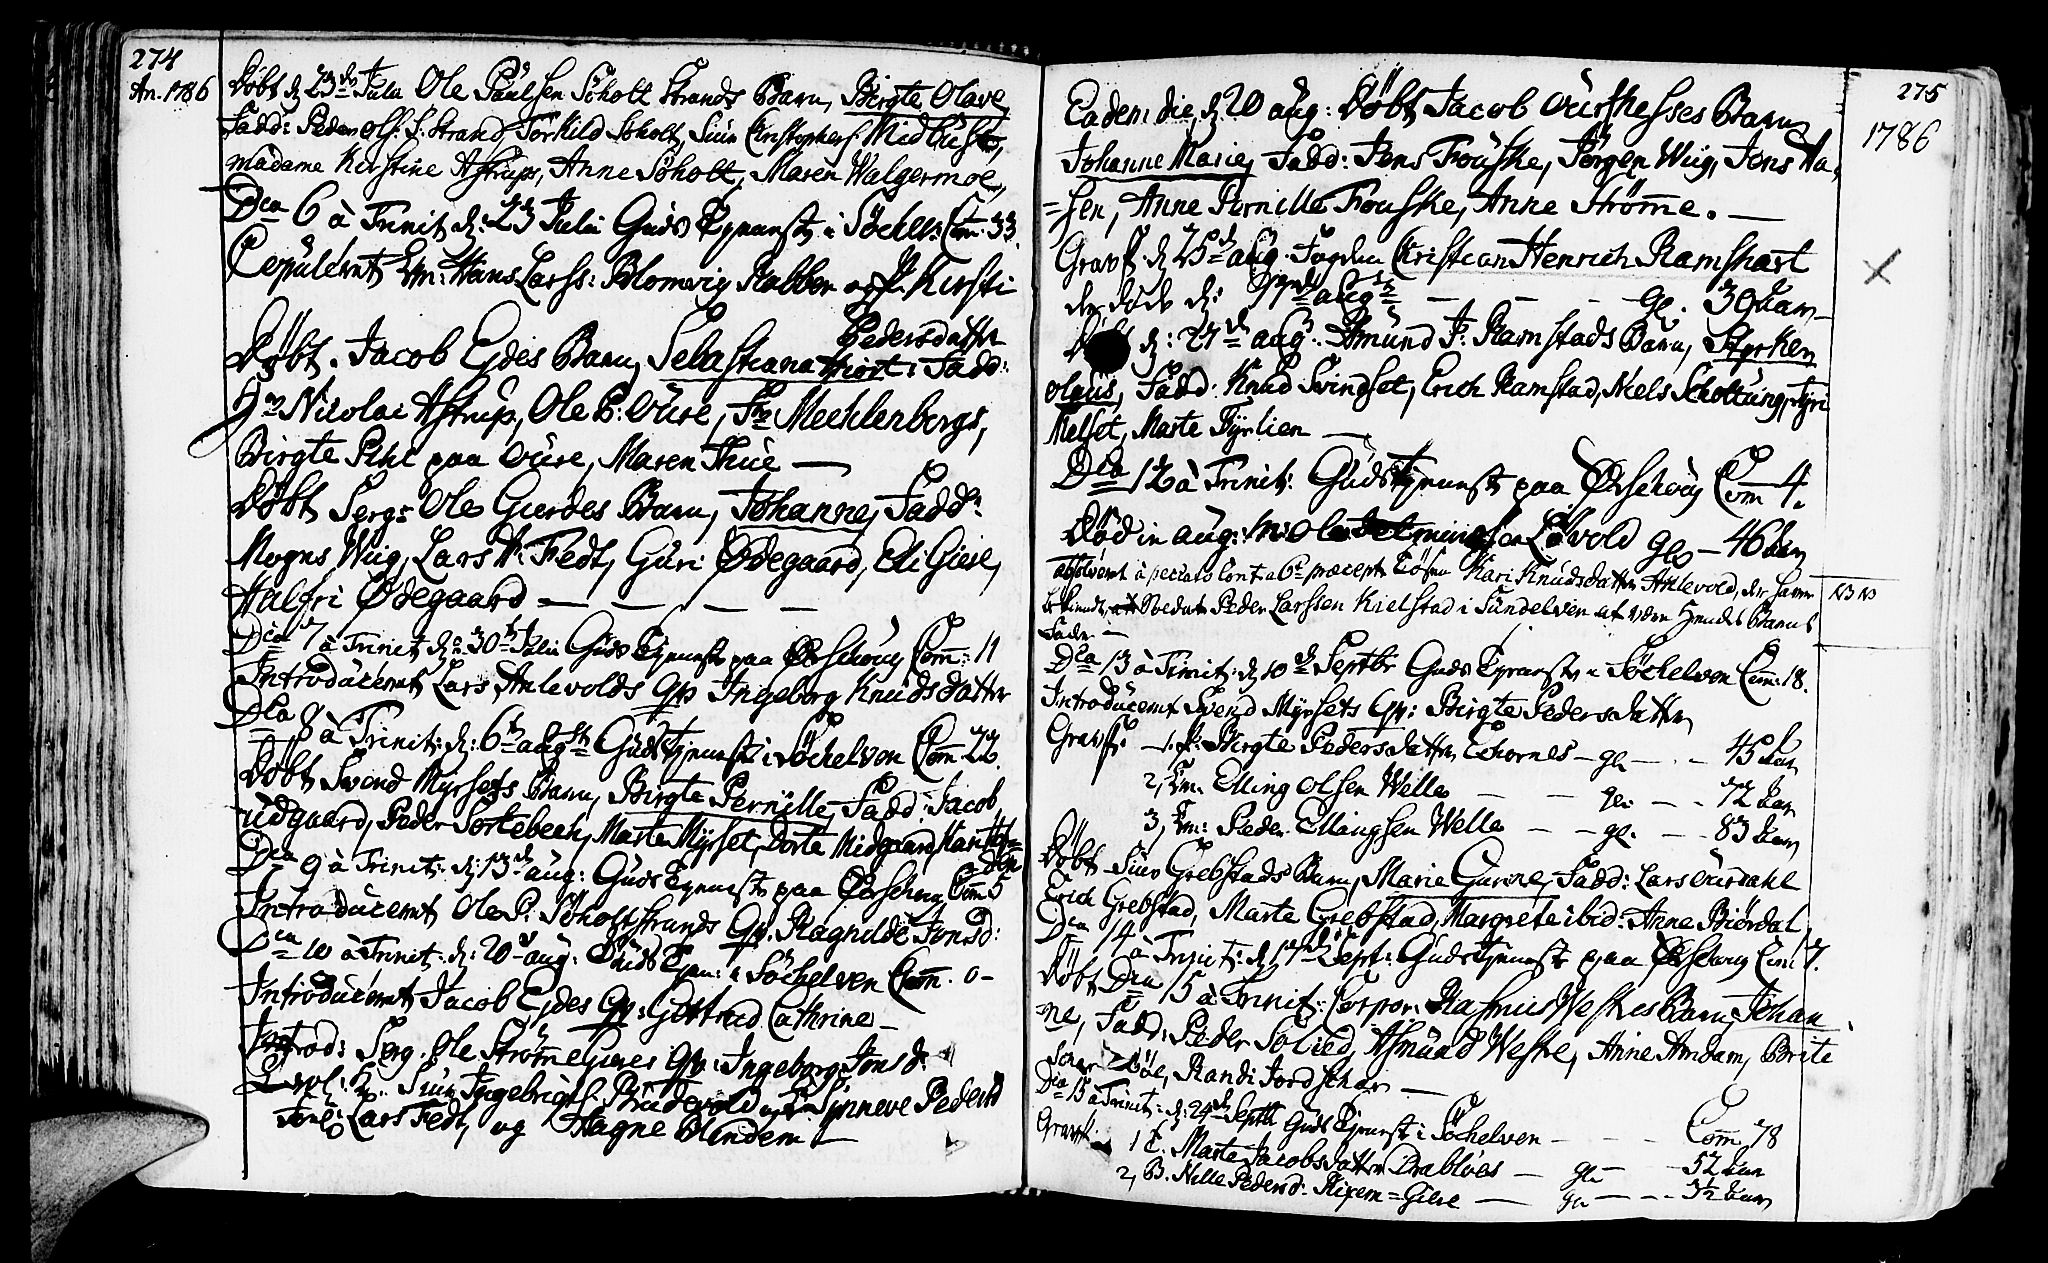 274
An. 1786
Döbt d: 23de Julii Ole Paulsen Söholt Strands Barn, Birgte Olave
Fadd: Peder Ols: S: Strand, Torkild Söholt, Siur Christophers: Midtlust,
Madame Kirstine Astrups, Anne Söholt, Maren Walgermoe,
Dca 6 à Trinit d: 23 Julii Guds Tjeneste i Söchelv: Com: 33.
Copulerert Em: Hans Larss: Blomvig Kabben og P. Kirsti
Pedersdatter
Döbt. Jacob Ejdes Barn, Sebastiana Hiort: Fadd:
Hr Nicolai Astrup, Ole P: Oure, Fr Mechlenbergs,
Birgte Pihl paa Oure, Maren Thue —
Döbt Serg: Ole Gierdes Barn, Johanne, Fadd:
Mogns Wiig, Lars A: Fedt, Guri Ødegaard, Eli Giere,
Halfri Ødegaard — — — —
Dca 7 à Trinit d: 30te Julii Guds Tjeneste paa Ørschoug Com: 11
Introducerert Lars Anlevolds Qv Ingeborg Knudsdatter
Dca 8 à Trinit: d: 6te augsti Guds Tjeneste i Söchelven Com 22.
Döbt Svend Myrsets Barn, Birgte Pernille, Fadd: Jacob
udgaard, Peder Sortebech, Marte Myrset, Dorte Midgaard, Kari
Dca 9 à Trinit: d: 13de aug: Guds Tjeneste paa Ørschoug Com 5
Introducerert Ole P: Söholtstrands Qv. Ragnilde Jonsd:
Dca 10 à Trinit: d: 20de aug: Guds Tjen: i Söchelven Com. 0 -
Introducerert Jacob Ejdes Qv: Gertrud Cathrine —
Introd: Serg. Ole Strömmegieres Qv: Ingeborg Jonsd:
Siur Ingebrigts: Brudevold og P. Synneve Pedersd
Lars Fedt, og Hagne Blindem —
275
1786
Eadem die, d: 20 aug: Döbt Jacob Ourskesses Barn
Johanne Marie, Fadd: Jens Frouske, Jörgen Wiig, Jens Aa,
=sen, Anne Pernille Frouske, Anne Strömme. —
Gravf. d: 25de aug. Fogden Christian Henrich Ramshart
der döde d: 17de augsti — — — gl: 39 Aar —
Döbt d: 27de aug: Amund P: Ramstads Barn, Styrker
Olaus, Fadd: Knud Svindset, Erich Ramstad, Niels Scholtung, Gyri
Melset, Marte Fyrlien —
Dca 12 à Trinit: Guds Tjeneste paa Ørschoug Com 4.
Död in aug: M: Ole Lövold gl — 46 Aar
absolverert à peccato contra 6te præcept: Tösen Kari Knudsdatter Anlevold, der haver
bekiendt Soldat Peder Larssen Kielstad i Sundelven at være Hendes Barns
Fader —
NB NB
Dca 13 à Trinit: d: 10de Septbr Guds Tjeneste i Söchelven Com: 18.
Introducerert Svend Myrsets Qv: Birgte Pedersdatter
Gravf: 1. P: Birgte Pedersdatter Thornes — gl — — 45 Aar
2, Em. Elling Olsen Welle — — gl: — — 72 Aar
3, Em: Peder Ellingsen Welle — — gl. — — 83 Aar
Döbt Siur Grebstads Barn, Marie Gurine, Fadd: Lars Ourdahl
Erich Grebstad, Marte Grebstad, Margrete ibid: Anne Biördal,
Dca 14 à Trinit: d: 17de Sept: Guds Tjeneste paa Ørschoug Com: 7.
Döbt Dca 15 à Trinit: Corpor: Rasmus Weskes Barn, Johan
=ne, Fadd: Peder Solied, Asmund Weske, Anne Amdam, Brite
Randi Jordschar —
Dca 15 à Trinit: d: 24de Septbr Guds Tjeneste i Söchelven — — — Com 78
Gravf. 1 C. Marte Jacobsdatter Drablöes — gl — — 52 Aar
2, B. Nille Pedersd: Ripem=Giere — gl — — 3½ Aar